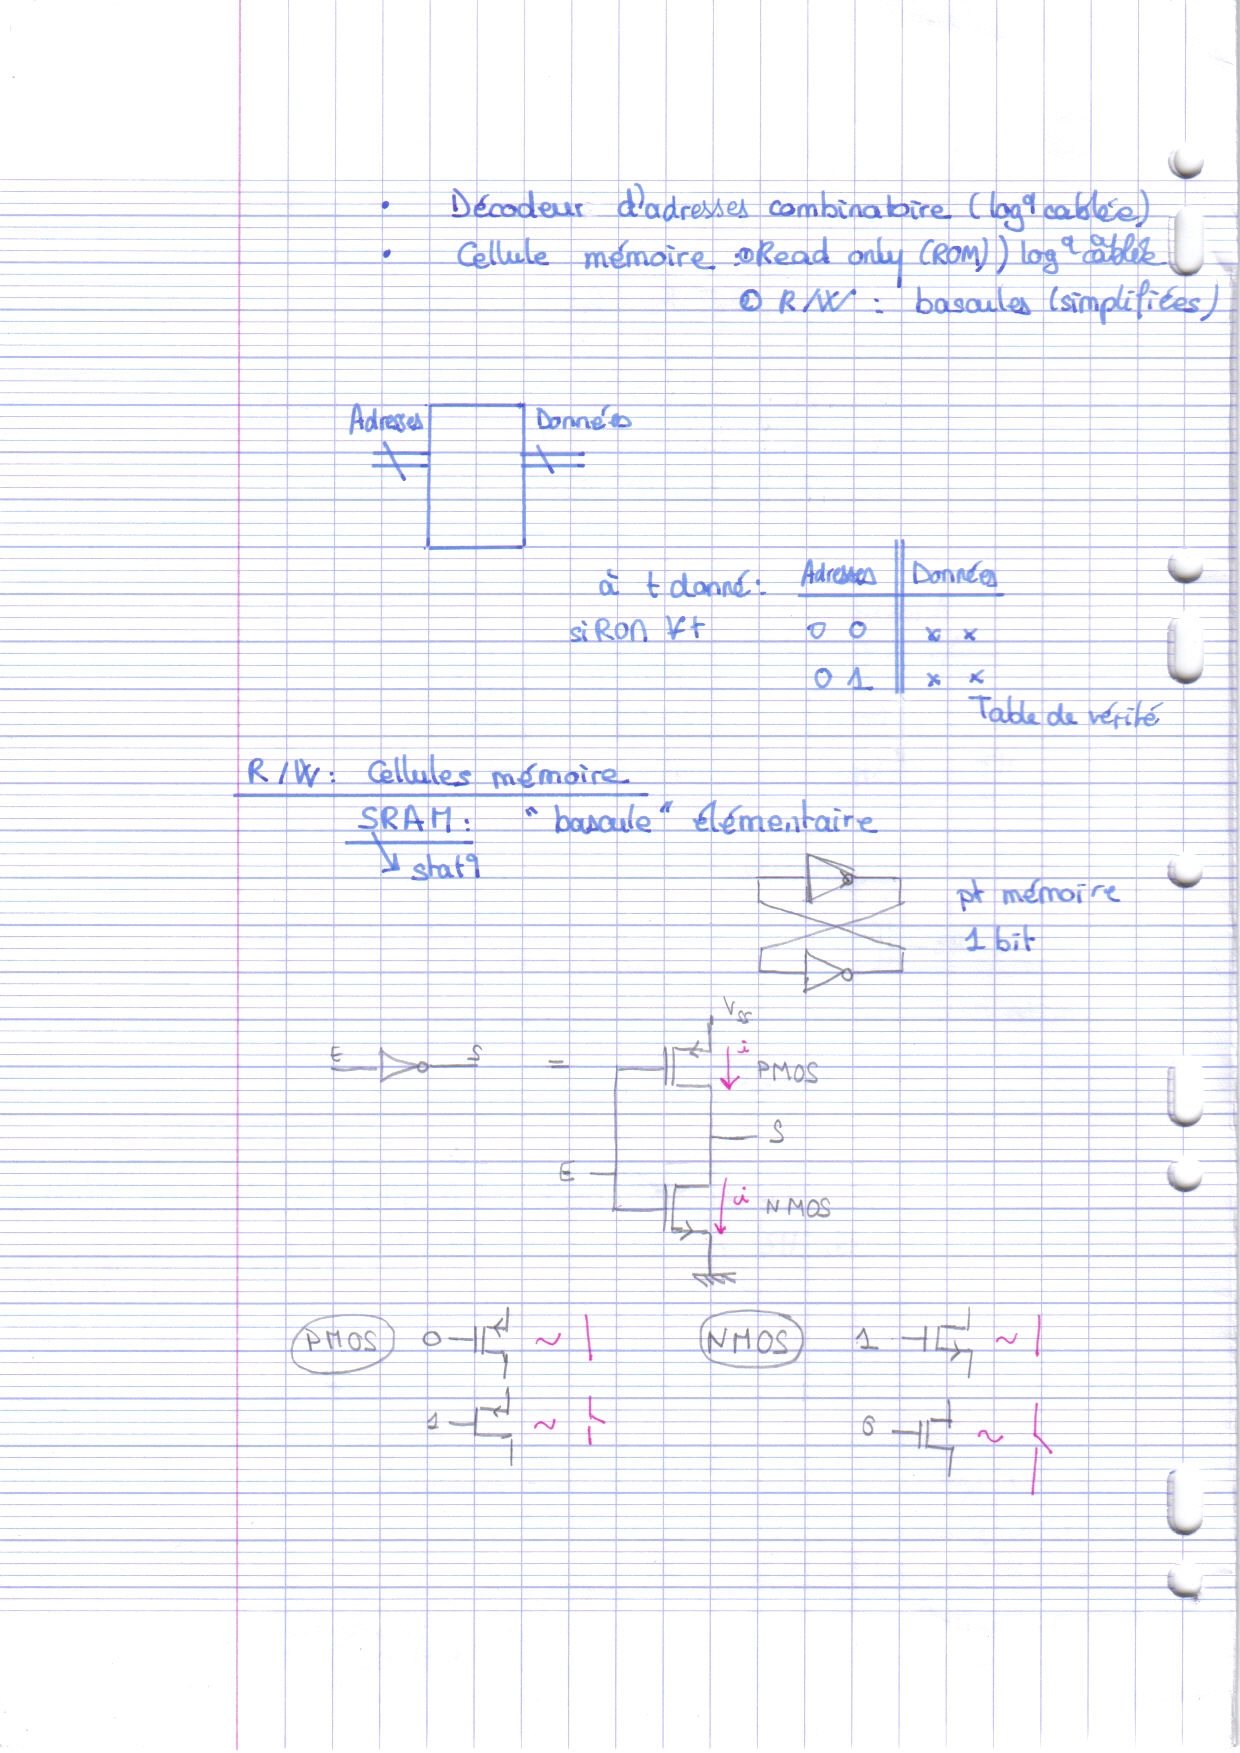 • Décodeur d'adresses combinatoire (logq cablée)
• Cellule mémoire : ① Read only (ROM)) logq cablée
② R/W : bascules (simplifiées)
Adresses Données
à t donné : Adresses Données
si ROM ∀t 0 0 x x
0 1 x x
Table de vérité
R/W : Cellules mémoire
SRAM : "bascule" élémentaire
↘ statq
pt mémoire
1 bit
Vss
E S = i PMOS
S
E
i NMOS
PMOS 0 ~ NMOS 1 ~
1 ~ 0 ~